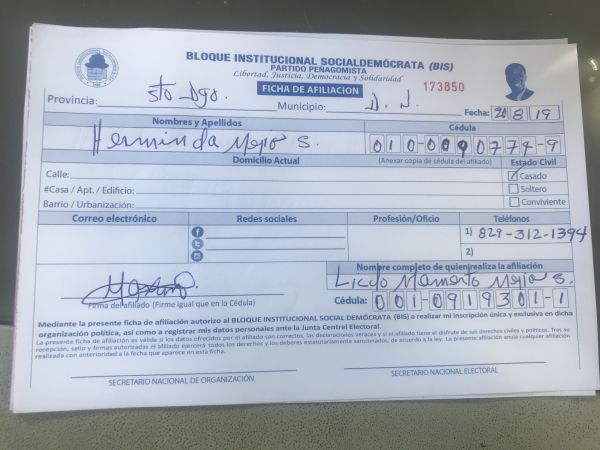 BLOQUE INSTITUCIONAL SOCIALDEMÓCRATA (BIS)
PARTIDO PEÑAGOMISTA
Libertad, Justicia, Democracia y Solidaridad
FICHA DE AFILIACION
173850
Provincia: Sto Dgo. Municipio: D. N. Fecha: 20 8 19
Nombres y Apellidos Cédula
Herminda Mejo S. 010-0090774-9
Domicilio Actual (Anexar copia de cédula del afiliado) Estado Civil
Calle: Casado
#Casa / Apt. / Edificio: Soltero
Barrio / Urbanización: Conviviente
Correo electrónico Redes sociales Profesión/Oficio Teléfonos
1) 829-312-1394
2)
Nombre completo de quien realiza la afiliación
Licdo Mejo S.
Firma del afiliado (Firme igual que en la Cédula) Cédula: 001-0919301-1
Mediante la presente ficha de afiliación autorizo al BLOQUE INSTITUCIONAL SOCIAL DEMÓCRATA (BIS) a realizar mi inscripción única y exclusiva en dicha
organización política, así como a registrar mis datos personales ante la Junta Central Electoral.
La presente ficha de afiliación es válida si los datos ofrecidos por el afiliado son correctos, las declaraciones veraces y si el afiliado tiene el disfrute de sus derechos civiles y políticos. Tras su
recepción, sello y firmas autorizadas el afiliado ejercerá todos los derechos y los deberes estatutariamente sancionados, de acuerdo a la ley. La presente afiliación anula cualquier afiliación
realizada con anterioridad a la fecha que aparece en esta ficha.
SECRETARIO NACIONAL DE ORGANIZACIÓN SECRETARIO NACIONAL ELECTORAL